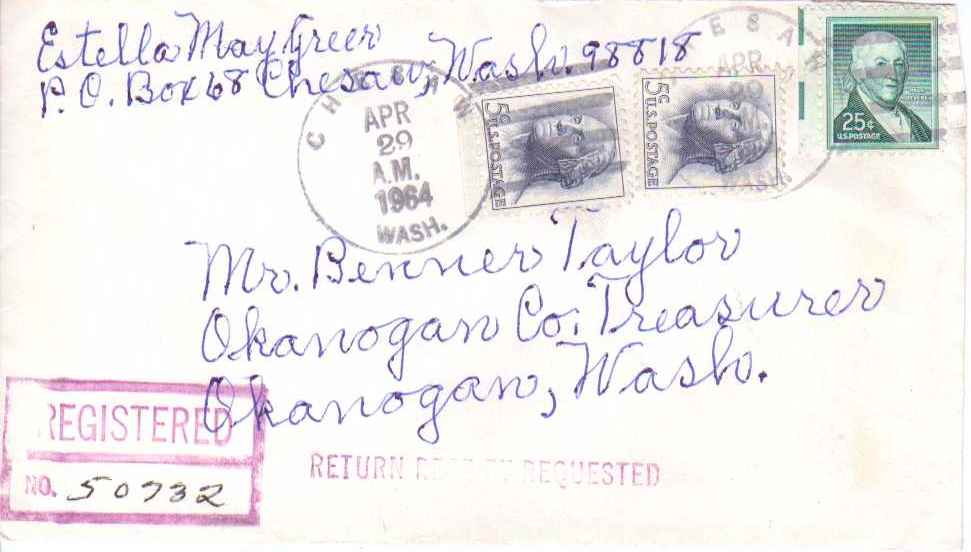 Estella May Greer
P.O. Box 68 Chesaw, Wash. 98818
CHESAW
APR
29
A.M.
1964
WASH.
5¢
U.S.POSTAGE
5¢
U.S.POSTAGE
ESAW
APR
29
WASH.
25¢
U.S.POSTAGE
Mr. Benner Taylor
Okanogan Co. Treasurer
Okanogan, Wash.
REGISTERED
NO. 50732
RETURN REQUESTED